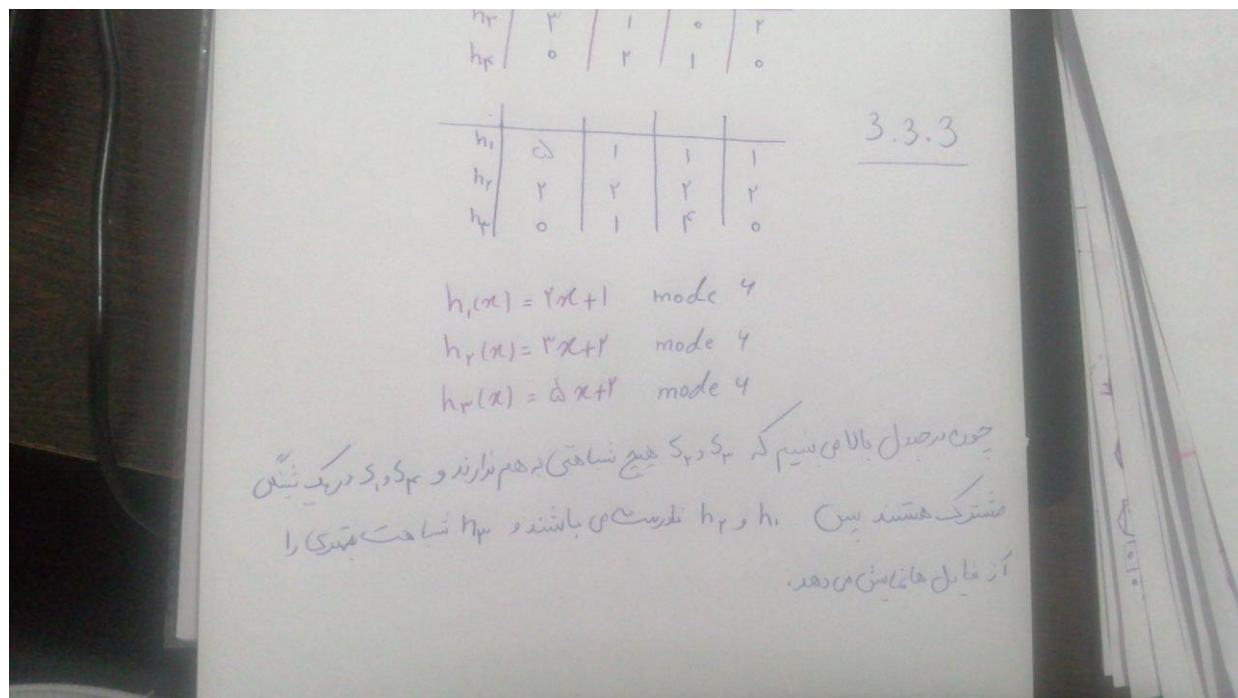 h۳ | ۳ | ۱ | ۰ | ۲
h۴ | ۰ | ۲ | ۱ | ۰
3.3.3
h۱ | ۵ | ۱ | ۱ | ۱
h۲ | ۲ | ۲ | ۲ | ۲
h۳ | ۰ | ۱ | ۴ | ۰
h۱(x) = ۲x+۱ mode ۶
h۲(x) = ۳x+۲ mode ۶
h۳(x) = ۵x+۲ mode ۶
چون در جدول بالا می بینیم که S۳ و S۲ هیچ شباهتی به هم ندارند و S۴ و S۱ در یک شینگل
مشترک هستند پس h۱ و h۲ نادرست می باشند و h۳ شباهت بهتری را
از فایل ها نمایش می دهد.